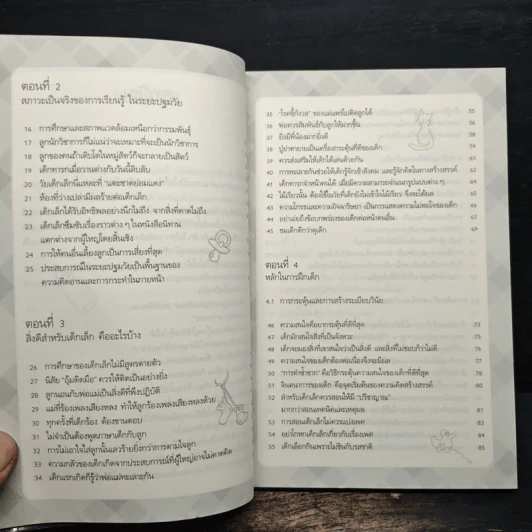 ตอนที่ 2
สภาวะเป็นจริงของการเรียนรู้ ในระยะปฐมวัย
16 การศึกษาและสภาพแวดล้อมเหนือกว่ากรรมพันธุ์
17 ลูกนักวิชาการก็ไม่แน่ว่าจะเหมาะที่จะเป็นนักวิชาการ
18 ลูกของคนถ้าเติบโตในหมู่สัตว์ก็จะกลายเป็นสัตว์
19 เด็กทารกเมื่อวานต่างกับวันนี้ลิบลับ
20 วัยเด็กเล็กนี่แหละที่ "เตะชาตย่อมแดง"
21 ห้องที่ว่างเปล่ามีผลร้ายต่อเด็กเล็ก
22 เด็กเล็กได้รับอิทธิพลอย่างนึกไม่ถึง จากสิ่งที่คาดไม่ถึง
23 เด็กเล็กซึมซับเรื่องราวต่าง ๆ ในหนังสือนิทาน
แตกต่างจากผู้ใหญ่โดยสิ้นเชิง
24 การให้คนอื่นเลี้ยงลูกเป็นการเสี่ยงที่สุด
25 ประสบการณ์ในระยะปฐมวัยเป็นพื้นฐานของ
ความคิดอ่านและการกระทำในภายหน้า
ตอนที่ 3
สิ่งดีสำหรับเด็กเล็ก คืออะไรบ้าง
26 การศึกษาของเด็กเล็กไม่มีสูตรตายตัว
27 นิสัย "อุ้มติดมือ" ควรให้ติดเป็นอย่างยิ่ง
28 ลูกนอนกับพ่อแม่เป็นสิ่งดีที่พึงปฏิบัติ
29 แม่ที่ร้องเพลงเสียงหลง ทำให้ลูกร้องเพลงเสียงหลงด้วย
30 ทุกครั้งที่เด็กร้อง ต้องขานตอบ
31 ไม่จำเป็นต้องพูดภาษาเด็กกับลูก
32 การไม่เอาใจใส่ลูกนั้นเลวร้ายยิ่งกว่าการตามใจลูก
33 ความกลัวของเด็กเกิดจากประสบการณ์ที่ผู้ใหญ่อาจไม่คาดคิด
34 เด็กแรกเกิดก็รู้ว่าพ่อแม่ทะเลาะกัน
35 "โรคขี้กังวล" ของแม่แพร่ไปติดลูกได้ 55
36 พ่อควรสัมพันธ์กับลูกให้มากขึ้น 56
37 ยิ่งมีพี่น้องมากยิ่งดี
38 ปู่ย่าตายายเป็นเครื่องกระตุ้นที่ดีของเด็ก
39 ควรส่งเสริมให้เด็กได้เล่นด้วยกัน
40 การทะเลาะกันช่วยให้เด็กรู้จักเข้าสังคม และรู้จักคิดในทางสร้างสรรค์
41 เด็กทารกจำหน้าคนได้ เมื่อมีความสามารถจำแนกรูปแบบต่าง ๆ
42 ไม้เรียวนั้น ต้องใช้ในวัยที่เด็กยังไม่เข้าใจไม้เรียว จึงจะได้ผล
43 ความโกรธและความอิจฉาริษยา เป็นการแสดงความไม่พอใจของเด็ก
44 อย่าเอ่ยถึงข้อบกพร่องของเด็กต่อหน้าคนอื่น
45 ชมเด็กดีกว่าดุเด็ก 69
ตอนที่ 4
หลักในการฝึกเด็ก
4.1 การกระตุ้นและการสร้างระเบียบวินัย
46 ความสนใจคือยากระตุ้นที่ดีที่สุด 73
47 เด็กมักสนใจสิ่งที่เป็นจังหวะ 75
48 เด็กจะมองสิ่งที่เขาสนใจว่าเป็นสิ่งดี และสิ่งที่ไม่ชอบก็ว่าไม่ดี
49 ความสนใจของเด็กต้องต่อเนื่องจึงจะมีผล
50 "การทำซ้ำซาก" คือวิธีกระตุ้นความสนใจของเด็กที่ดีที่สุด
51 จินตนาการของเด็ก คือจุดเริ่มต้นของความคิดสร้างสรรค์
52 สำหรับเด็กเล็กควรสอนให้มี "ปรีชาญาณ"
มากกว่าสอนเทคนิคและเหตุผล 81
53 การสอนเด็กเล็กไม่ควรแบ่งเพศ 83
54 อย่าโกหกเด็กเล็กเกี่ยวกับเรื่องเพศ 84
55 เด็กเลือกกินเพราะไม่ชินกับรสชาติ 85